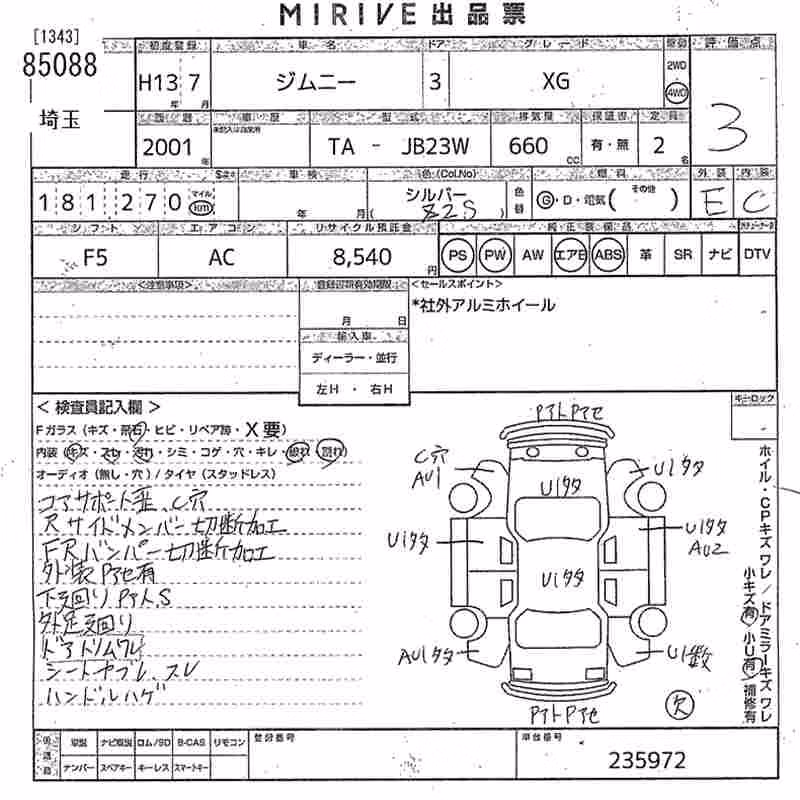 MIRIVE 出品票
[1343]
85088
埼玉
初度登録 車名 ドア グレード 駆動 評価点
H13 7 ジムニー 3 XG 2WD 4WD 3
年 月
車歴 型式 排気量 保証書 定員
2001 年 TA - JB23W 660 CC 有・無 2 名
走行 車検 色(Col.No) 燃料 外装 内装
181270 マイル Km 年 月 シルバー (Z2S) 色替 G・D・電気(その他 ) E C
シフト エアコン リサイクル預託金 純正装備品
F5 AC 8,540 円 PS PW AW エアB ABS 革 SR ナビ DTV
<注意事項> 登録書類有効期限 <セールスポイント>
月 日 *社外アルミホイール
輸入車
ディーラー・並行
左H ・ 右H
< 検査員記入欄 > キーロック
Fガラス (キズ・飛石・ヒビ・リペア跡・X要)
内装 (キズ・スレ・汚れ・シミ・コゲ・穴・キレ・破れ・割れ)
オーディオ (無し・穴) / タイヤ (スタッドレス)
コアサポート歪、C穴
Rサイドメンバー切断加工
FRバンパー切断加工
外装Pアセ有
下廻りPアト、S
ドアトリムワレ
シートヤブレ、スレ
ハンドルハゲ
PアトPアセ
C穴
AU1
U1タタ
U1タタ
U1タタ
U1タタ
AU2
U1タタ
AU1タタ
U1数
PアトPアセ
欠
ホイル・CPキズ ワレ / ドアミラーキズ ワレ
小キズ有 小U有 補修有
取説 ナビ取説 ロム/SD B-CAS リモコン 登録番号 車台番号
ナンバー スペアキー キーレス スマートキー 235972